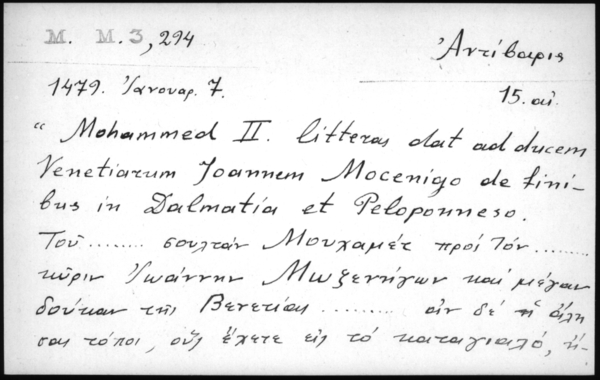 M. M. 3, 294
Ἀντίβαρις
1479. Ἰανουαρ. 7.
15. αἰ.
“ Mohammed II. litteras dat ad ducem
Venetiarum Joannem Mocenigo de fini-
bus in Dalmatia et Peloponneso.
Τοῦ ........ σουλτὰν Μουχαμέτ πρὸς τόν ........
κῦριν Ἰωάννην Μωζενήγων καὶ μέγαν
δούκαν τῆς Βενετίας ......... αἱ δὲ ἄλλη
σας τόποι, οὓς ἔχετε εἰς τὸ καταγιαλό, ἤ-